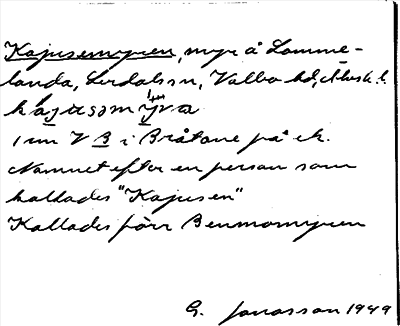 Kajusemyren, myr å Lomme-
landa, Lerdalssn, Valbo hd, Älvsb. l.
kajusəmyra
1 mm V B i Bråtane på ek.
Namnet efter en person som
kallades "Kajusen"
Kallades förr Benmomyren
G. Jonasson 1949